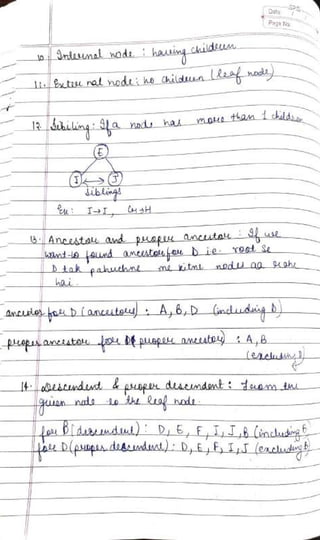 Date
Page No.
10. Internal node : having children
11. External node : no children (leaf node)
12. Sibiling : If a node has more than 1 children
E
I J
siblings
Ex : I→J, G→H
13. Ancestor and proper ancestor : If we
want to found ancestor for D i.e. root se
D tak pahuchne me kitne nodes aa rahe
hai.
ancestor for D (ancestors) : A, B, D (including D)
proper ancestor for (proper ancestor) : A, B
(excluding D)
14. Descendent & proper descendent : From the
given node to the leaf node.
for B (descendent) : D, E, F, I, J, B (including B)
for D (proper descendent) : D, E, F, I, J (excluding B)